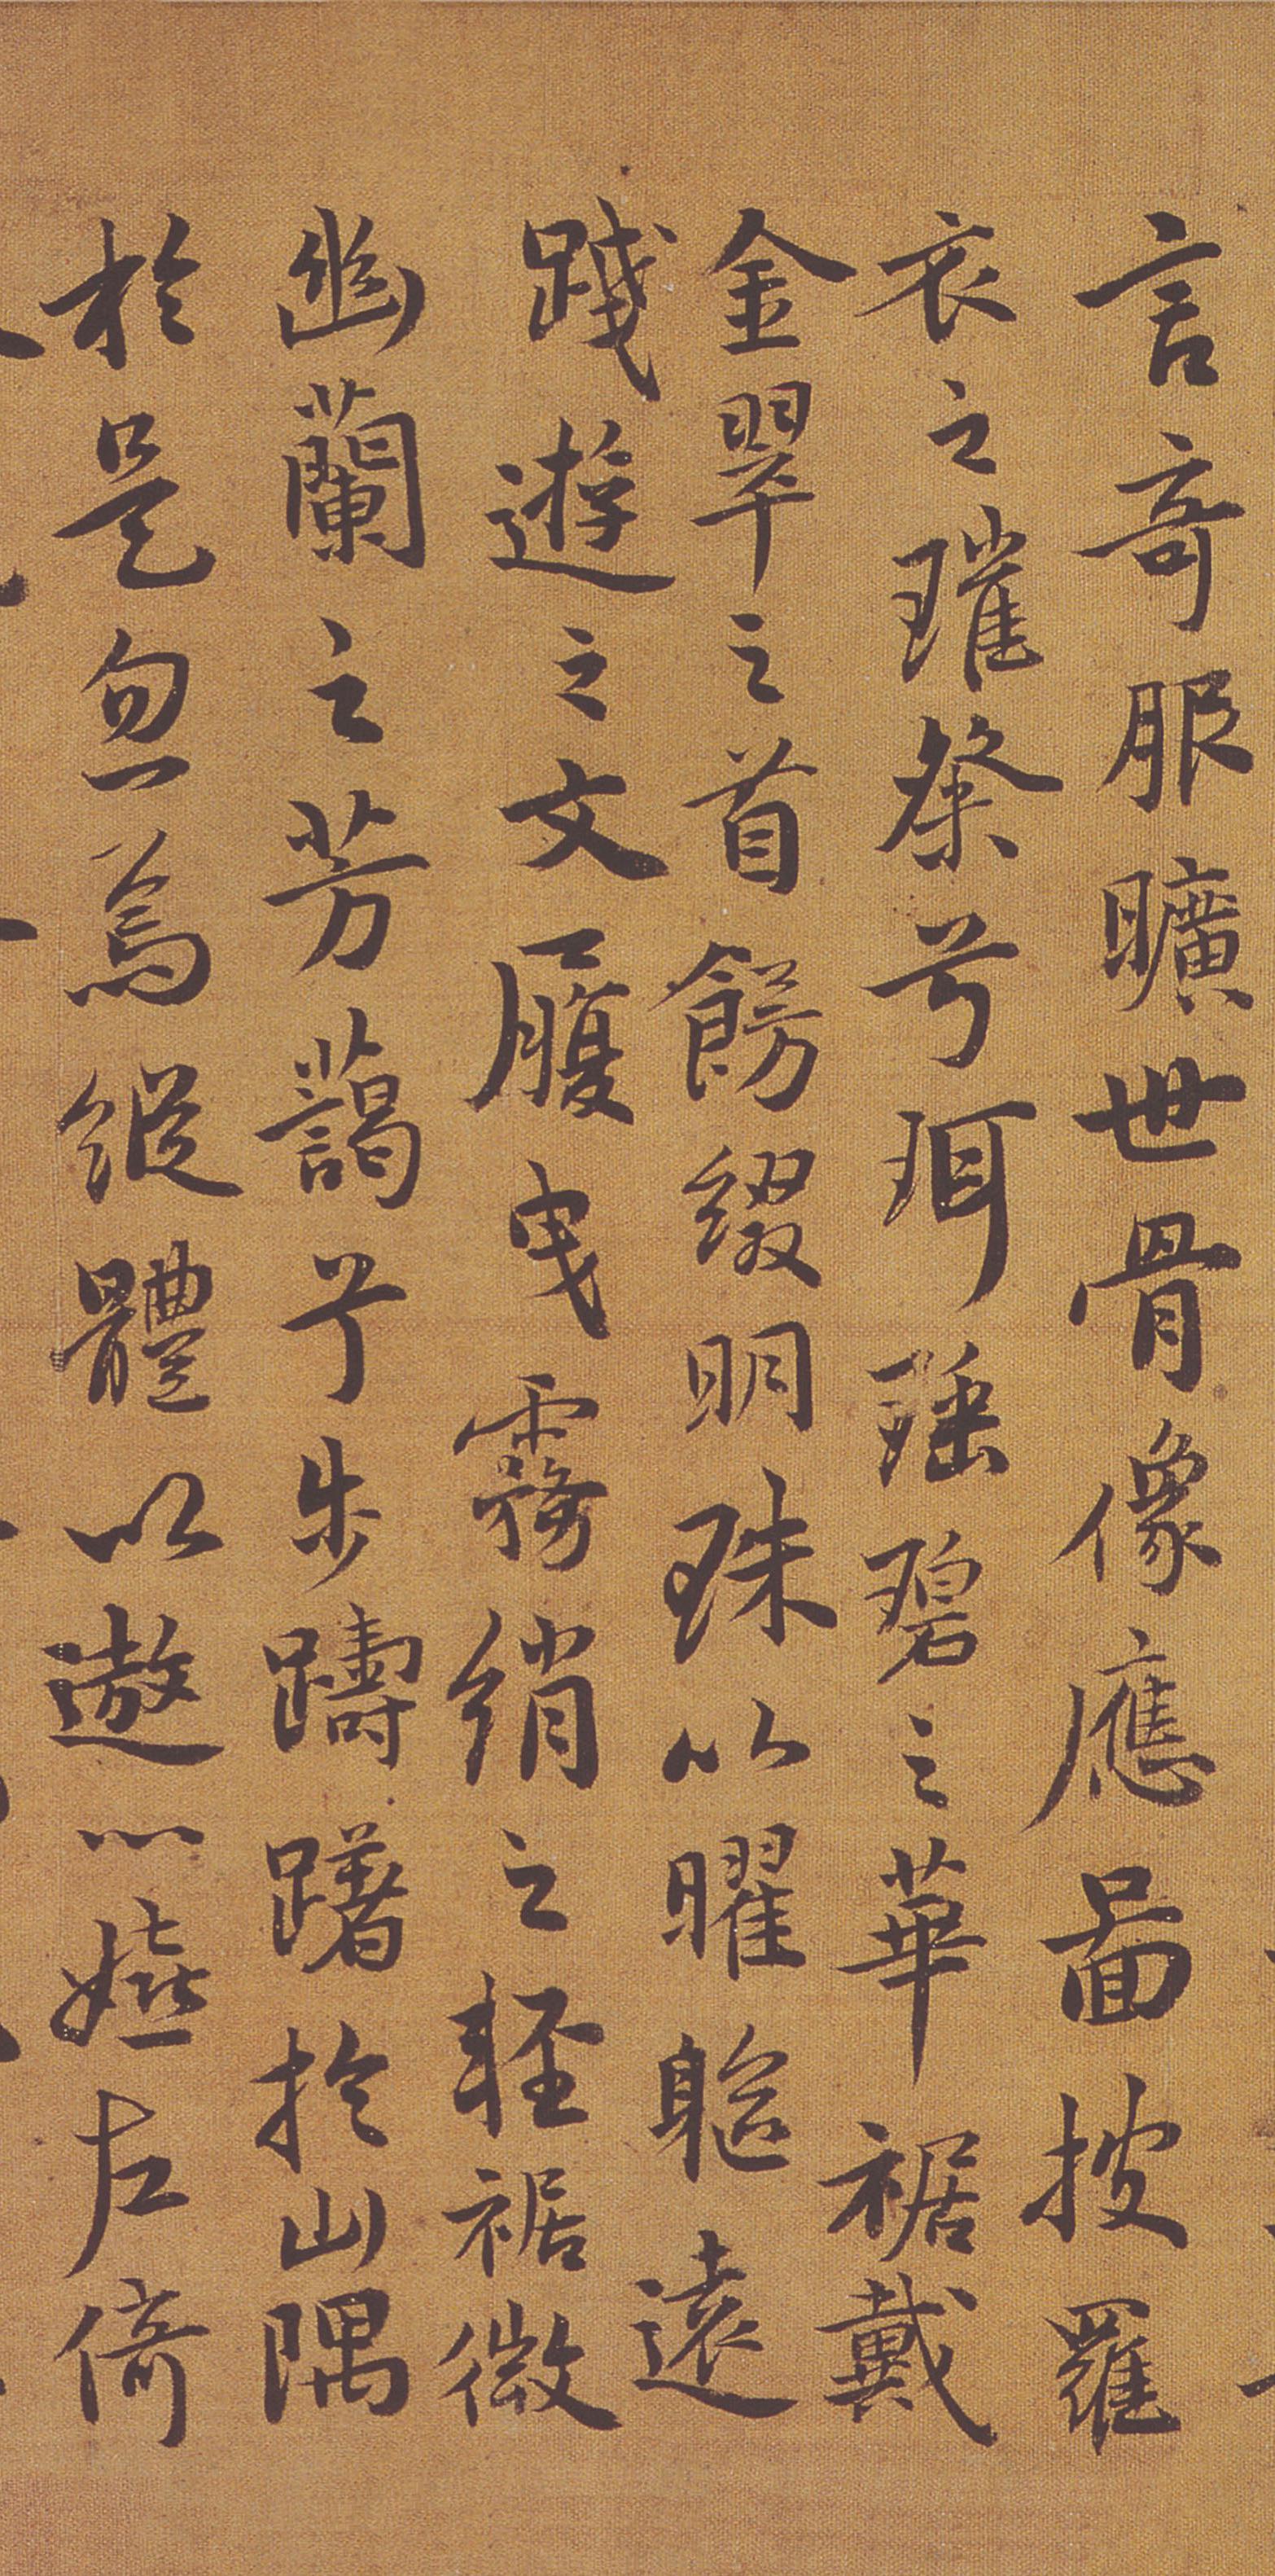 言奇服曠世骨像應圖披羅
衣之璀粲兮珥瑤碧之華裾戴
金翠之首飾綴明珠以曜軀遠
踐遊之文履曳霧綃之輕裾微
幽蘭之芳藹兮步躊躇於山隅
於是忽焉縱體以遨以嬉左倚